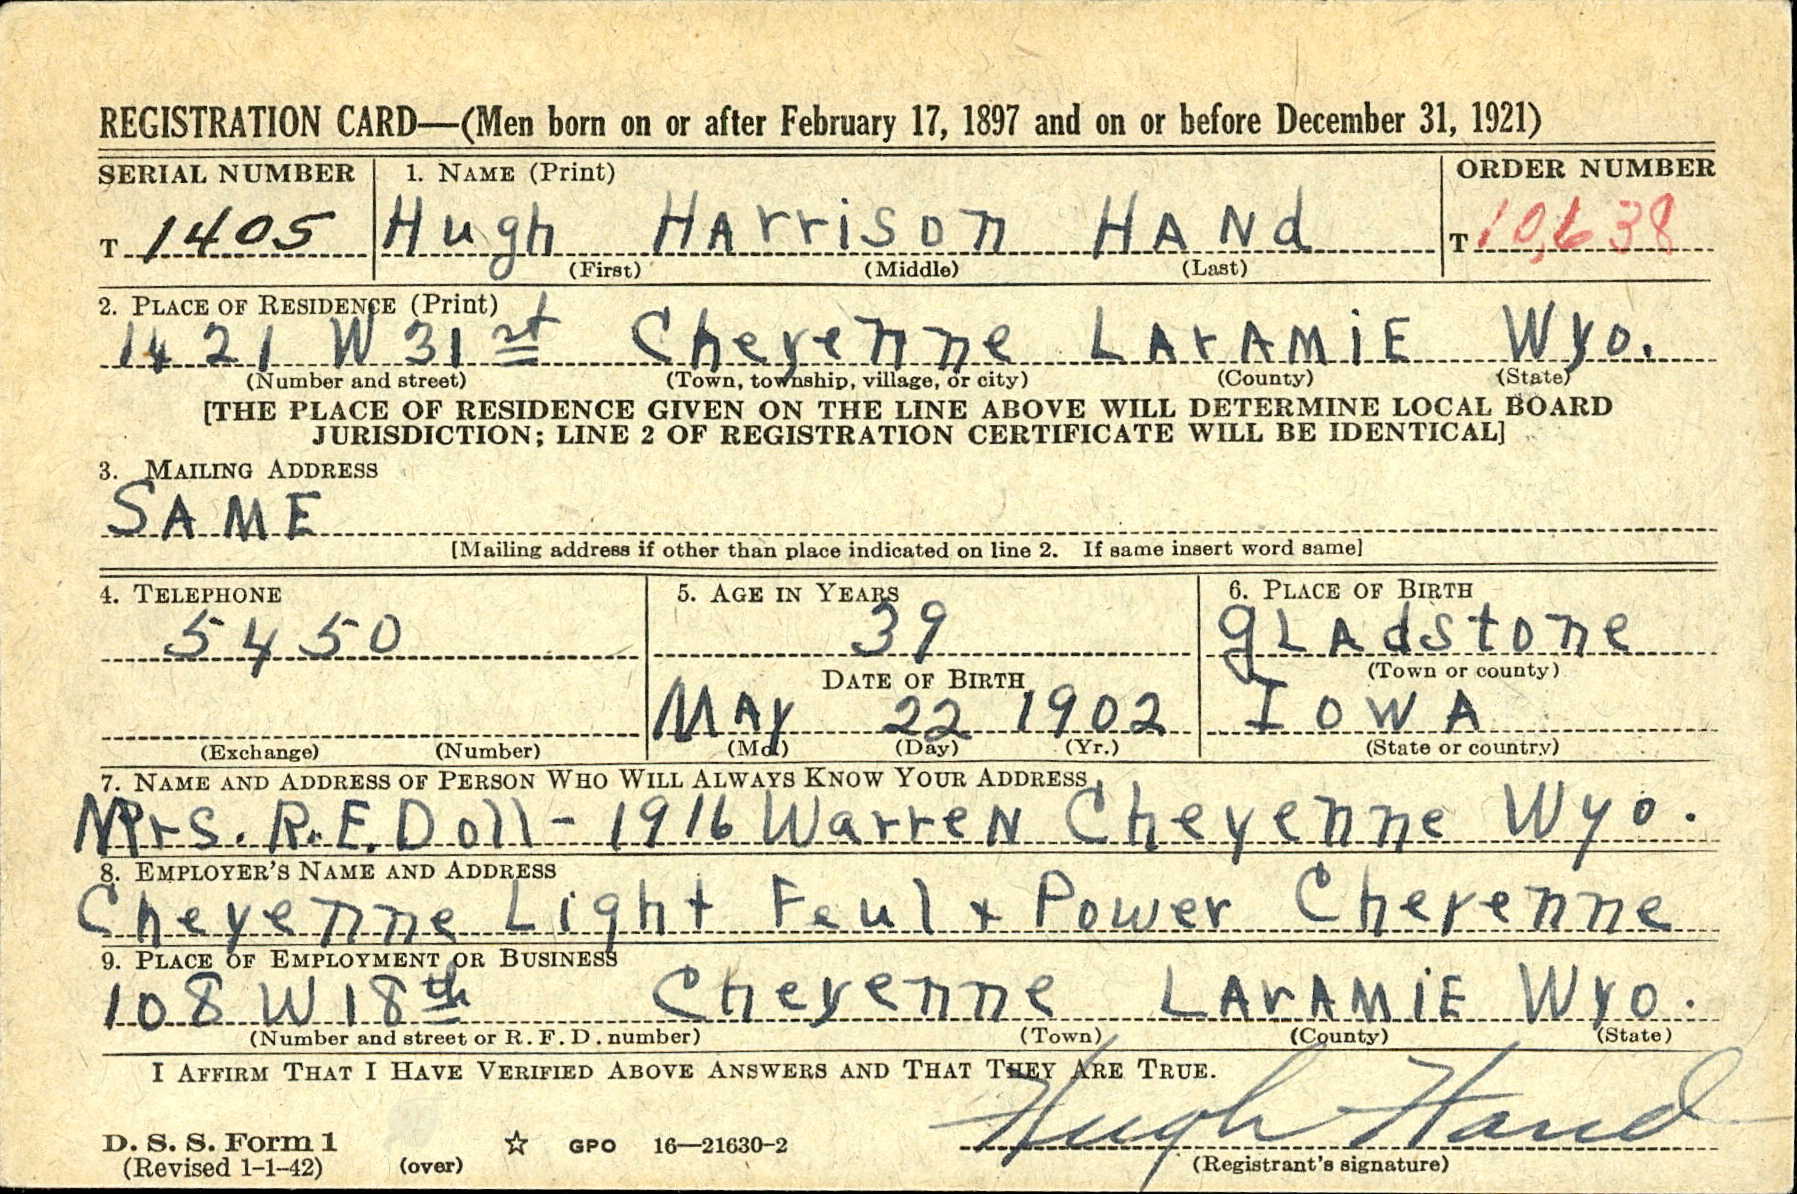 REGISTRATION CARD—(Men born on or after February 17, 1897 and on or before December 31, 1921)
SERIAL NUMBER 1. NAME (Print) ORDER NUMBER
T 1405 Hugh HArrison HANd T 10,638
(First) (Middle) (Last)
2. PLACE OF RESIDENCE (Print)
1421 W 31st Cheyenne LArAMiE Wyo.
(Number and street) (Town, township, village, or city) (County) (State)
[THE PLACE OF RESIDENCE GIVEN ON THE LINE ABOVE WILL DETERMINE LOCAL BOARD
JURISDICTION; LINE 2 OF REGISTRATION CERTIFICATE WILL BE IDENTICAL]
3. MAILING ADDRESS
SAME
[Mailing address if other than place indicated on line 2. If same insert word same]
4. TELEPHONE 5. AGE IN YEARS 6. PLACE OF BIRTH
5450 39 gLAdstone
(Town or county)
DATE OF BIRTH
MAy 22 1902 IOWA
(Exchange) (Number) (Mo.) (Day) (Yr.) (State or country)
7. NAME AND ADDRESS OF PERSON WHO WILL ALWAYS KNOW YOUR ADDRESS
Mrs. R. E. Doll - 1916 WarreN Cheyenne Wyo.
8. EMPLOYER'S NAME AND ADDRESS
Cheyenne Light Feul + Power Cheyenne
9. PLACE OF EMPLOYMENT OR BUSINESS
108 W 18th Cheyenne LArAMiE Wyo.
(Number and street or R. F. D. number) (Town) (County) (State)
I AFFIRM THAT I HAVE VERIFIED ABOVE ANSWERS AND THAT THEY ARE TRUE.
Hugh Hand
D. S. S. Form 1
(Revised 1-1-42) (over) ☆ GPO 16—21630-2 (Registrant's signature)